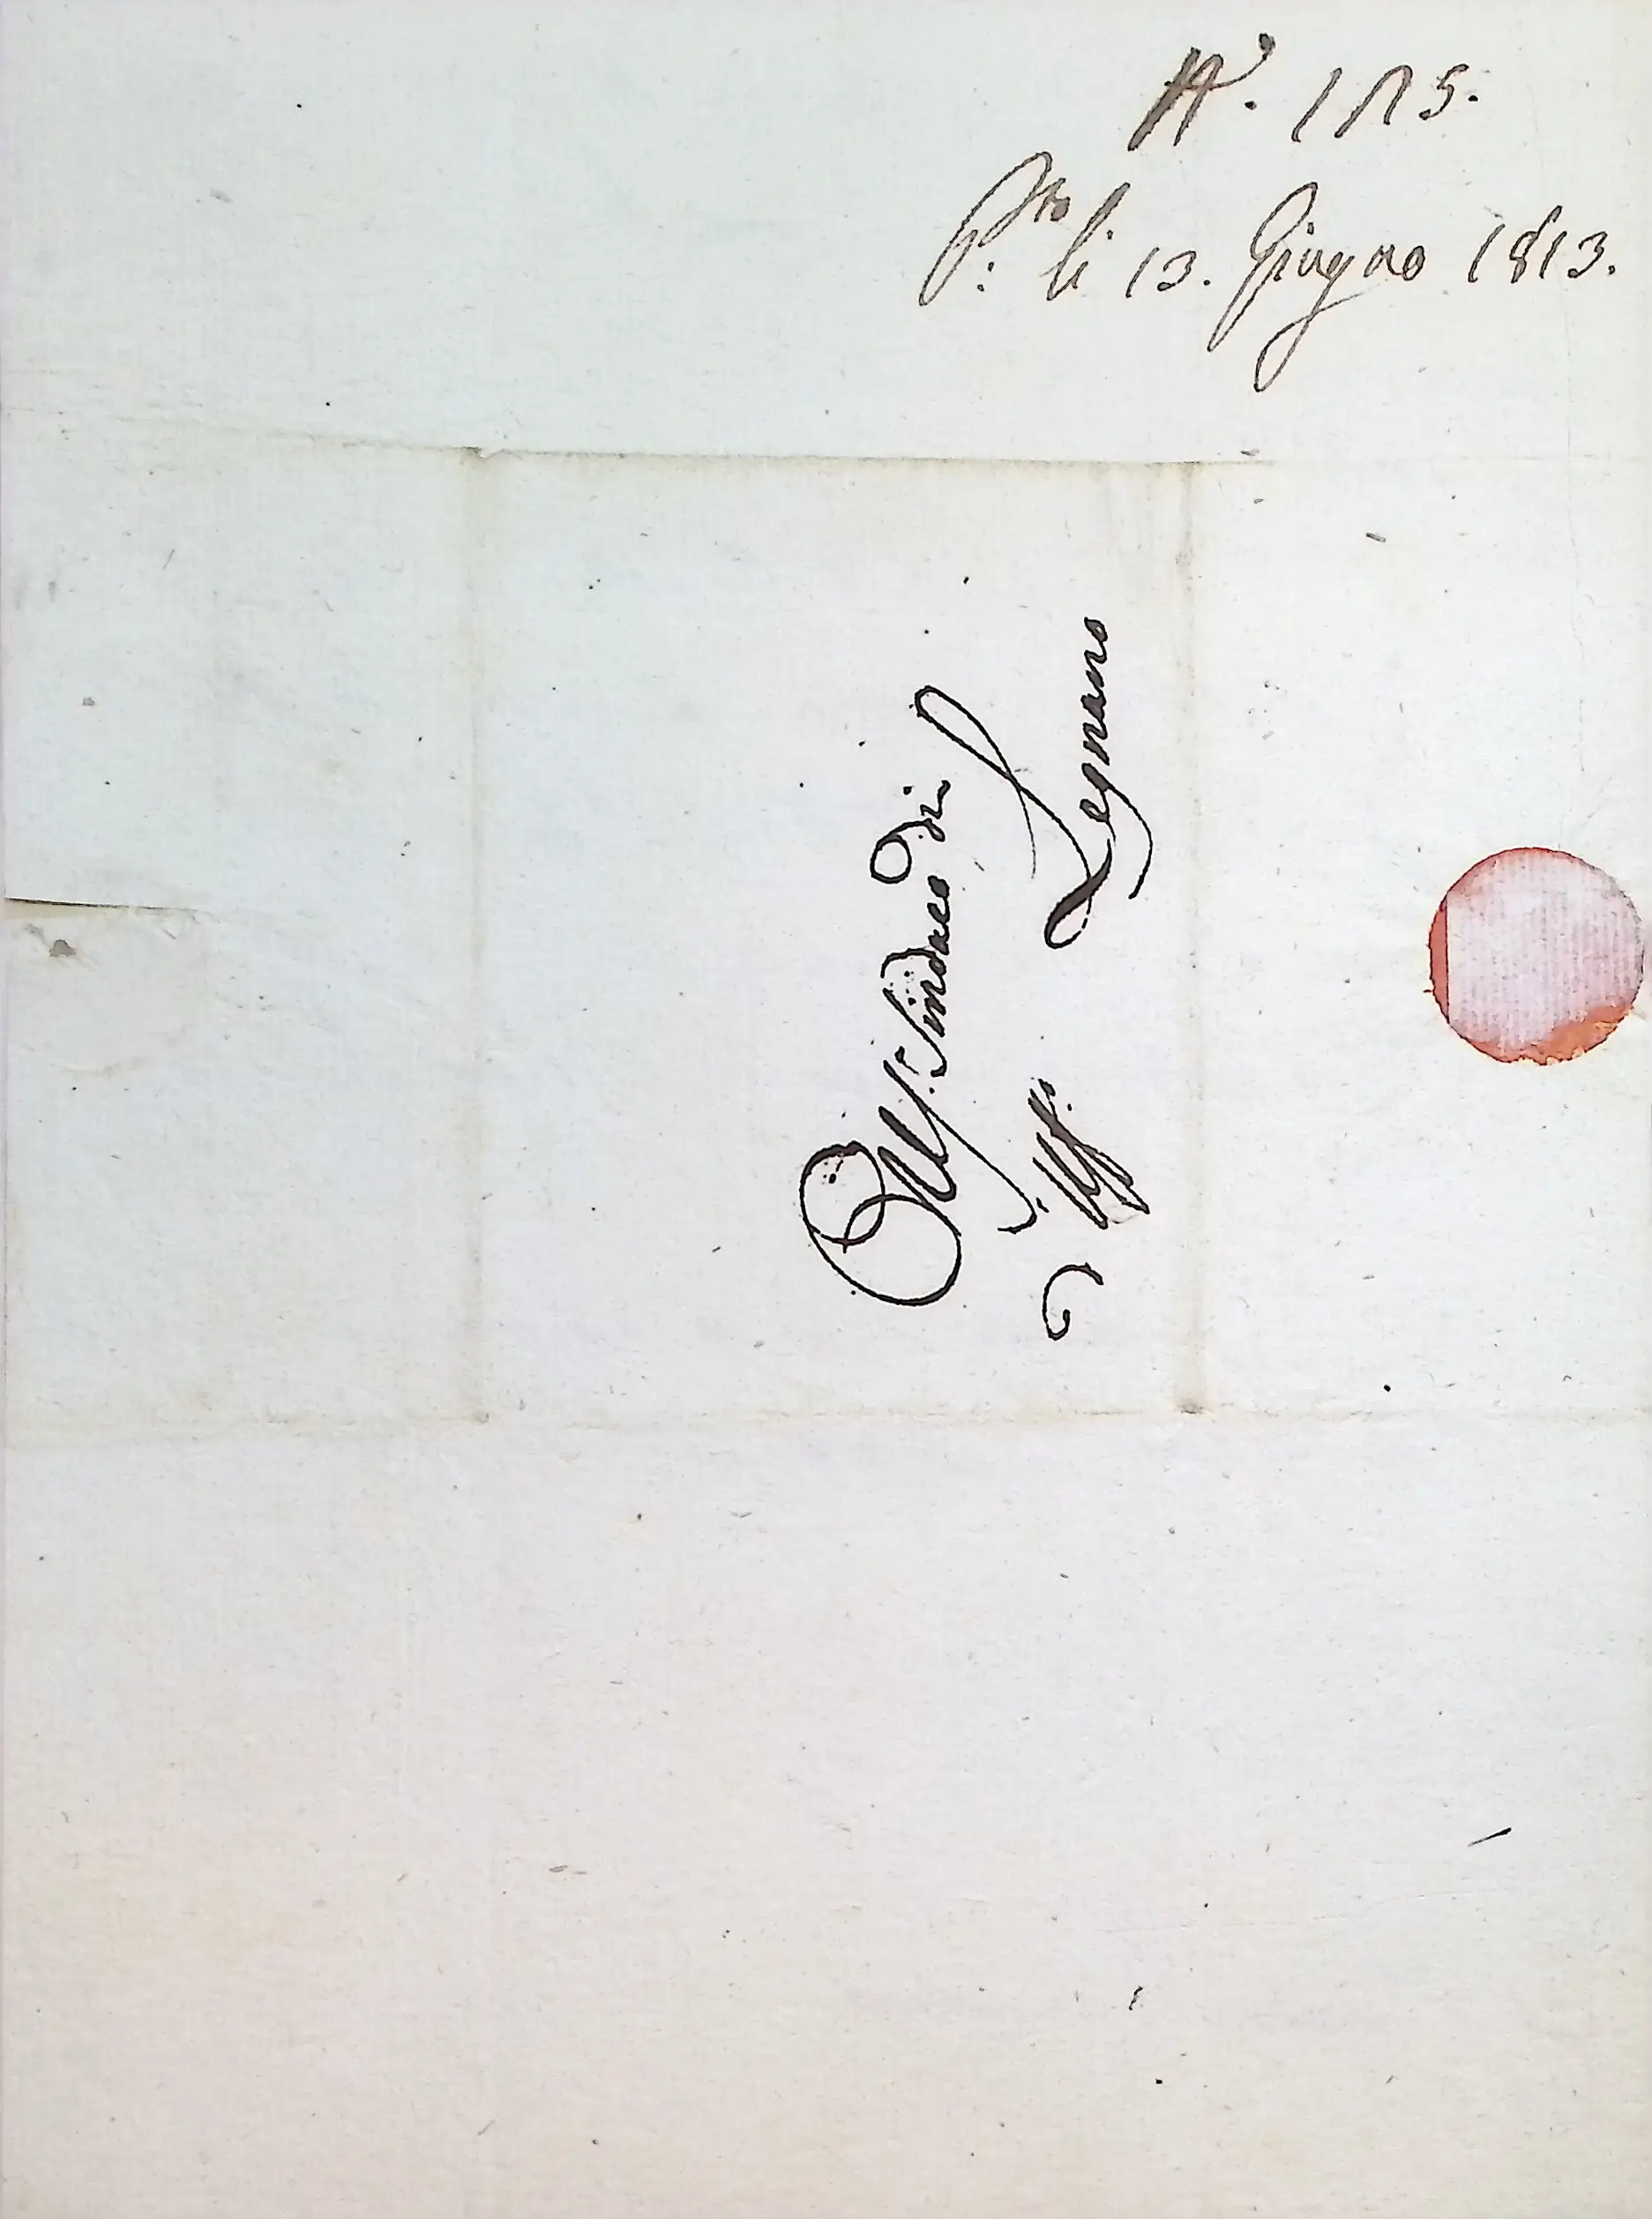 N.° 175.
P.to li 13. Giugno 1813.
Al Sindaco di
Legnano